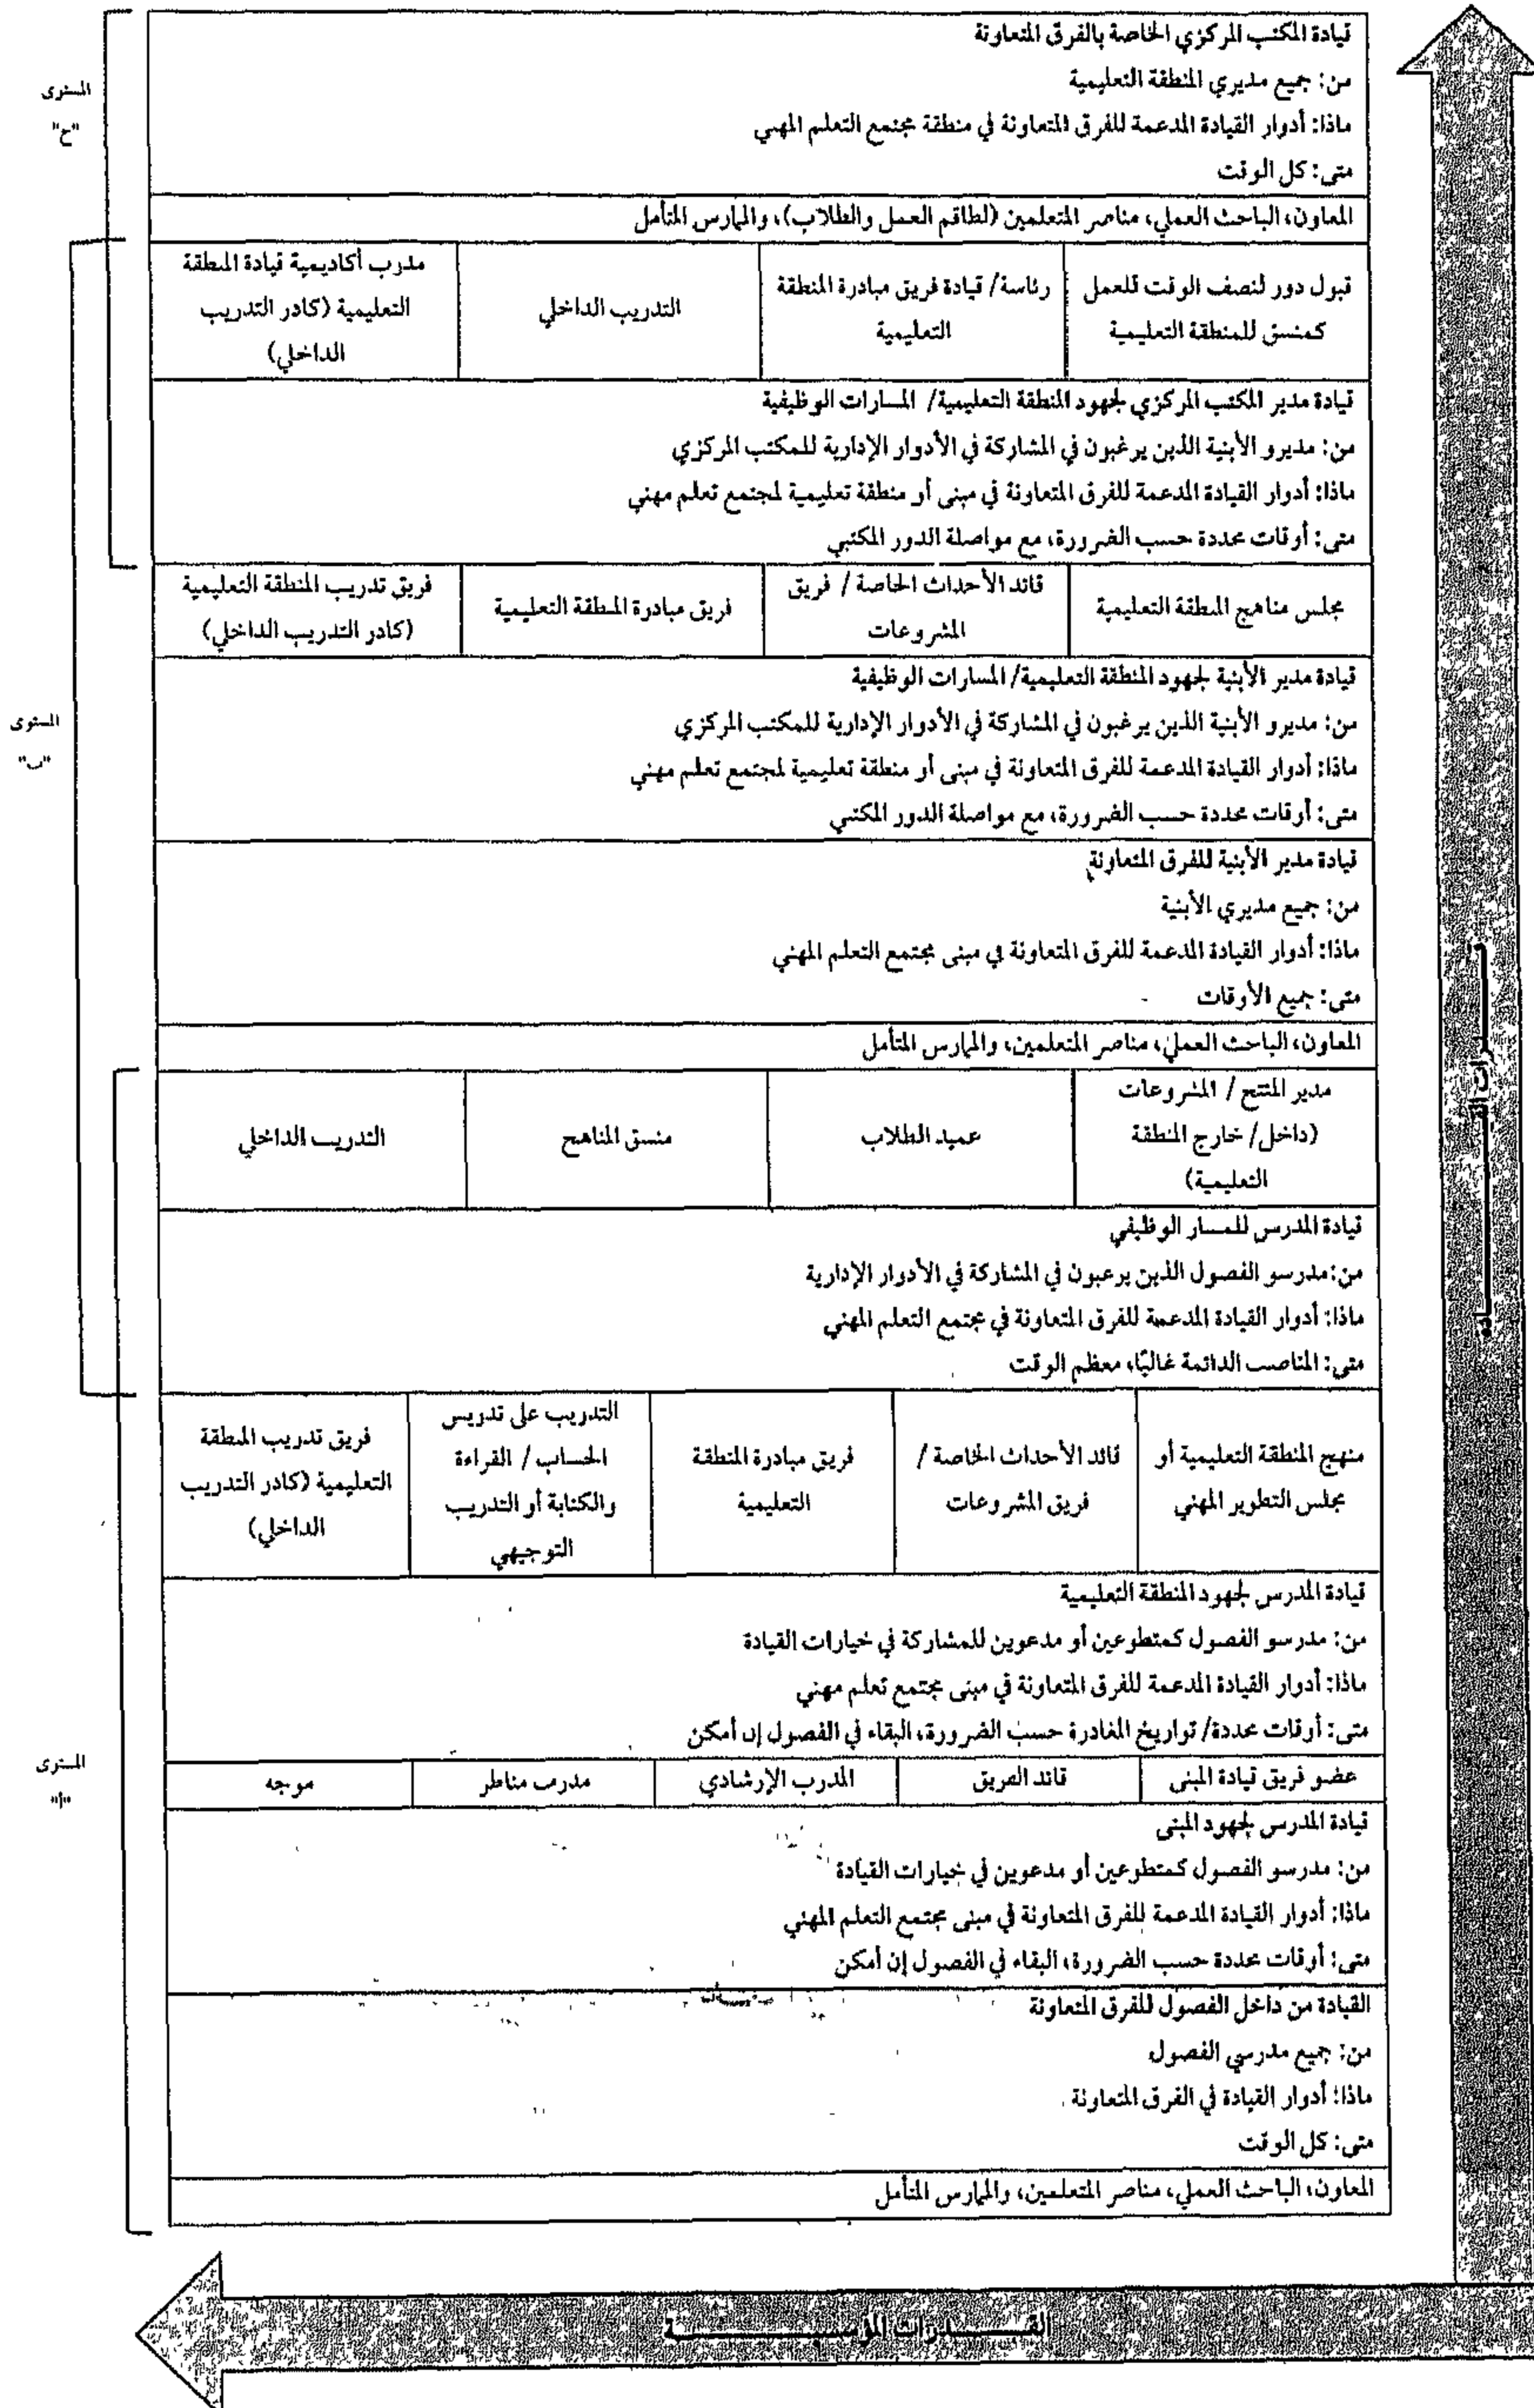 قيادة المكتب المركزي الخاصة بالفرق المتعاونة
من: جميع مديري المنطقة التعليمية
ماذا: أدوار القيادة المدعمة للفرق المتعاونة في منطقة مجتمع التعلم المهني
متى: كل الوقت
المستوى
"ج"
المعاون، الباحث العملي، مناصر المتعلمين (لطاقم العمل والطلاب)، والممارس المتأمل
قبول دور لنصف الوقت للعمل
كمنسق للمنطقة التعليمية
رئاسة/ قيادة فريق مبادرة المنطقة
التعليمية
التدريب الداخلي
مدرب أكاديمية قيادة المنطقة
التعليمية (كادر التدريب
الداخلي)
قيادة مدير المكتب المركزي لجهود المنطقة التعليمية/ المسارات الوظيفية
من: مديرو الأبنية الذين يرغبون في المشاركة في الأدوار الإدارية للمكتب المركزي
ماذا: أدوار القيادة المدعمة للفرق المتعاونة في مبنى أو منطقة تعليمية لمجتمع تعلم مهني
متى: أوقات محددة حسب الضرورة، مع مواصلة الدور المكتبي
مجلس مناهج المنطقة التعليمية
قائد الأحداث الخاصة / فريق
المشروعات
فريق مبادرة المنطقة التعليمية
فريق تدريب المنطقة التعليمية
(كادر التدريب الداخلي)
قيادة مدير الأبنية لجهود المنطقة التعليمية/ المسارات الوظيفية
من: مديرو الأبنية الذين يرغبون في المشاركة في الأدوار الإدارية للمكتب المركزي
ماذا: أدوار القيادة المدعمة للفرق المتعاونة في مبنى أو منطقة تعليمية لمجتمع تعلم مهني
متى: أوقات محددة حسب الضرورة، مع مواصلة الدور المكتبي
المستوى
"ب"
قيادة مدير الأبنية للفرق المتعاونة
من: جميع مديري الأبنية
ماذا: أدوار القيادة المدعمة للفرق المتعاونة في مبنى مجتمع التعلم المهني
متى: جميع الأوقات
المعاون، الباحث العملي، مناصر المتعلمين، والممارس المتأمل
مدير المنتج / المشروعات
(داخل/ خارج المنطقة
التعليمية)
عميد الطلاب
منسق المناهج
التدريب الداخلي
قيادة المدرس للمسار الوظيفي
من: مدرسو الفصول الذين يرغبون في المشاركة في الأدوار الإدارية
ماذا: أدوار القيادة المدعمة للفرق المتعاونة في مجتمع التعلم المهني
متى: المناصب الدائمة غالبًا، معظم الوقت
منهج المنطقة التعليمية أو
مجلس التطوير المهني
قائد الأحداث الخاصة /
فريق المشروعات
فريق مبادرة المنطقة
التعليمية
التدريب على تدريس
الحساب / القراءة
والكتابة أو التدريب
التوجيهي
فريق تدريب المنطقة
التعليمية (كادر التدريب
الداخلي)
قيادة المدرس لجهود المنطقة التعليمية
من: مدرسو الفصول كمتطوعين أو مدعوين للمشاركة في خيارات القيادة
ماذا: أدوار القيادة المدعمة للفرق المتعاونة في مبنى مجتمع تعلم مهني
متى: أوقات محددة/ تواريخ المغادرة حسب الضرورة، البقاء في الفصول إن أمكن
المستوى
"أ"
عضو فريق قيادة المبنى
قائد الفريق
المدرب الإرشادي
مدرب مناظر
موجه
قيادة المدرس لجهود المبنى
من: مدرسو الفصول كمتطوعين أو مدعوين في خيارات القيادة
ماذا: أدوار القيادة المدعمة للفرق المتعاونة في مبنى مجتمع التعلم المهني
متى: أوقات محددة حسب الضرورة، البقاء في الفصول إن أمكن
القيادة من داخل الفصول للفرق المتعاونة
من: جميع مدرسي الفصول
ماذا: أدوار القيادة في الفرق المتعاونة
متى: كل الوقت
المعاون، الباحث العملي، مناصر المتعلمين، والممارس المتأمل
قدرات القيادة
القدرات المؤسسية